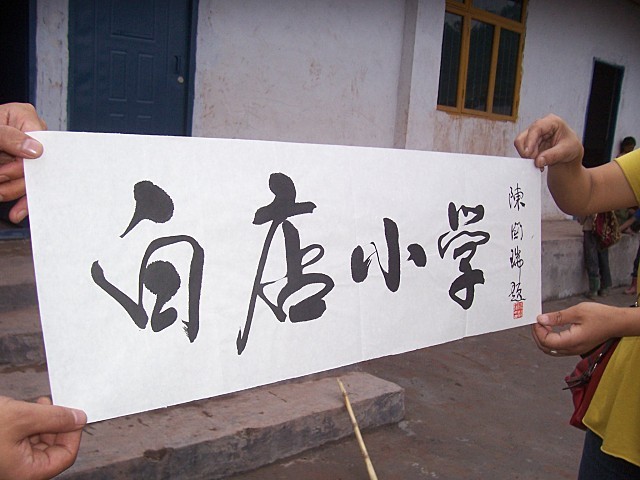 白店小学
陳国瑞题